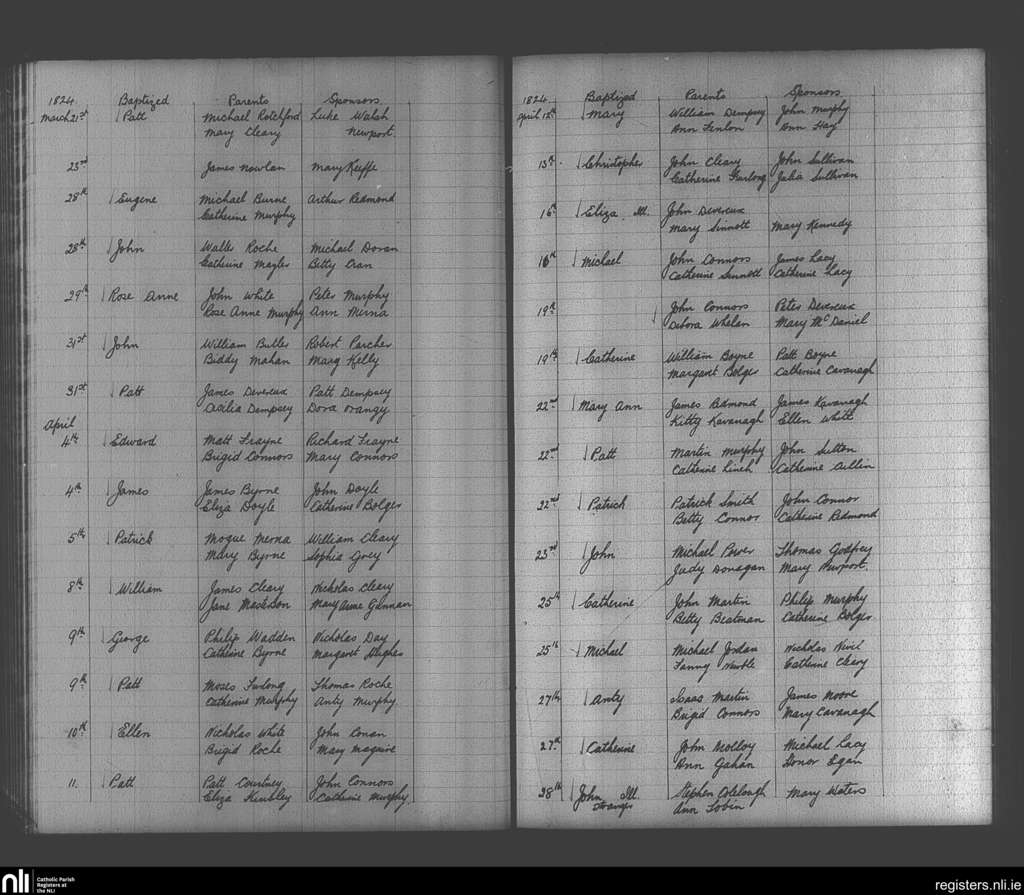 1824 Baptized Parents Sponsors
March 21st Patt Michael Rotchford Luke Walsh
Mary Cleary Newport.
25th James Nowlan Mary Keeffe
28th Eugene Michael Burne Arthur Redmond
Catherine Murphy
28th John Walter Roche Michael Doran
Catherine Magler Betty Cran
29th Rose Anne John White Peter Murphy
Rose Anne Murphy Ann Merna
31st John William Butler Robert Parcher
Biddy Mahan Mary Kelly
31st Patt James Devereux Patt Dempsey
Cecilia Dempsey Dora
April
4th Edward Matt Frayne Richard Frayne
Brigid Connors Mary Connors
4th James James Byrne John Doyle
Eliza Doyle Catherine Bolger
5th Patrick Mogue Merna William Cleary
Mary Byrne Sophia Grey
8th William James Cleary Nicholas Cleary
Jane Masterson Mary Anne Gannan
9th George Philip Wadden Nicholas Day
Catherine Byrne Margaret Hughes
9th Patt Moses Furlong Thomas Roche
Catherine Murphy Anty Murphy
10th Ellen Nicholas White John Conan
Brigid Roche Mary Maguire
11. Patt Patt Courtney John Connors
Eliza Kinsley Catherine Murphy
1824 Baptized Parents Sponsors
April 12th Mary William Dempsey John Murphy
Ann Fenlon Ann Hay
13th Christopher John Cleary John Sullivan
Catherine Furlong Julia Sullivan
16th Eliza Ill. John Devereux
Mary Sinnott Mary Kennedy
16th Michael John Connors James Lacy
Catherine Sinnott Catherine Lacy
19th John Connors Peter Devereux
Debora Whelan Mary McDaniel
19th Catherine William Boyne Patt Boyne
Margaret Bolger Catherine Cavanagh
22nd Mary Ann James Redmond James Kavanagh
Kitty Kavanagh Ellen White
22nd Patt Martin Murphy John Sutton
Catherine Linch Catherine Cullin
22nd Patrick Patrick Smith John Connor
Betty Connor Catherine Redmond
23rd John Michael Power Thomas Godfrey
Judy Donagan Mary Newport.
25th Catherine John Martin Philip Murphy
Betty Beatman Catherine Bolger
25th Michael Michael Jordan Nicholas Nevil
Fanny Catherine Cleary
27th Anty Isaac Martin James Moore
Brigid Connors Mary Cavanagh
27th Catherine John Molloy Michael Lacy
Ann Gahan Honor Egan
28th John Ill. Stephen Colclough Mary Waters
Stranger Ann Tobin
nli Catholic Parish
Registers at
the NLI
registers.nli.ie